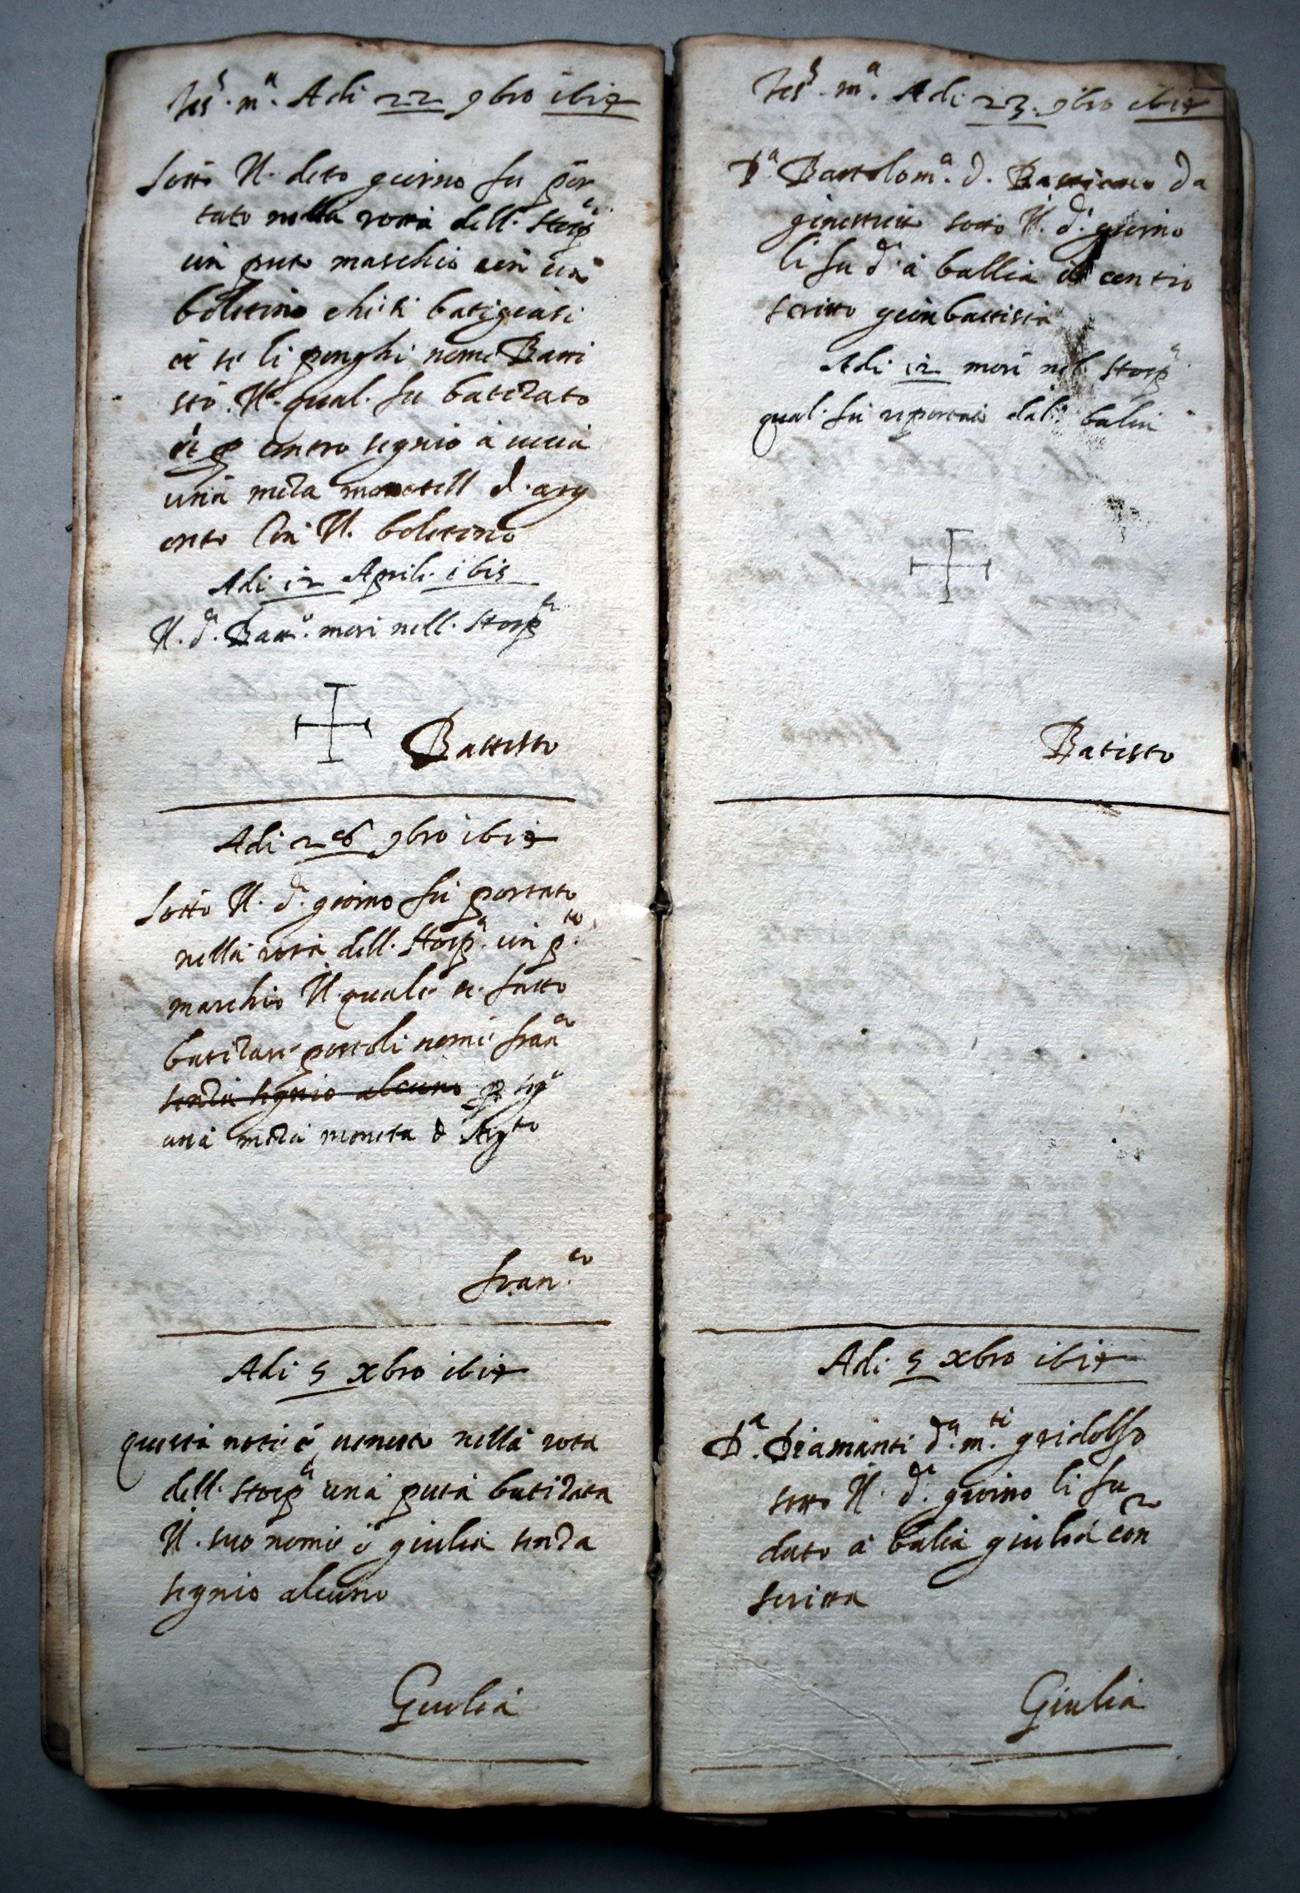 Jes.s m.a Adi 22 9bro 1617
sotto Il deto giorno fu por
tato nella rota dell. Stosp.e
un puto maschio con un
boletino chi si batigiasi
et se li ponghi nome Batti
sto. Il qual. fu batizato
et p contro segnio a
una meza d. arg
ento Con Il. boletino
Adi 12 Aprile 1618
Il. d.o Batt.o mori nell. Stosp.e
Battisto
Adi 26 9bro 1617
sotto Il. d.o giorno fu portato
nella rota dell. Stosp.e un p.to
maschio Il quale se fatto
batizare postoli nome fran.co
senza segnio alcuno p seg.o
una meza moneta d Arg.to
fran.co
Adi 5 xbro 1617
questa note é venuta nella rota
dell. Stosp.e una puta batizata
Il. suo nome é giulia senza
segnio alcuno
Giulia
Jes.s m.a Adi 23 9bro 1617
D.a Bartolom.a d. Bastiano da
sotto Il. d.o giorno
li fu d.o a ballia il contro
scritto gioanbattista
Adi 12 mori nel. Stosp.e
qual. fu riportato dal. balia
Batisto
Adi 5 xbro 1617
D.a Diamanti d.a m.ti gridolfo
sotto Il. d.o giorno li fu
dato a balia giulia contro
scritta
Giulia